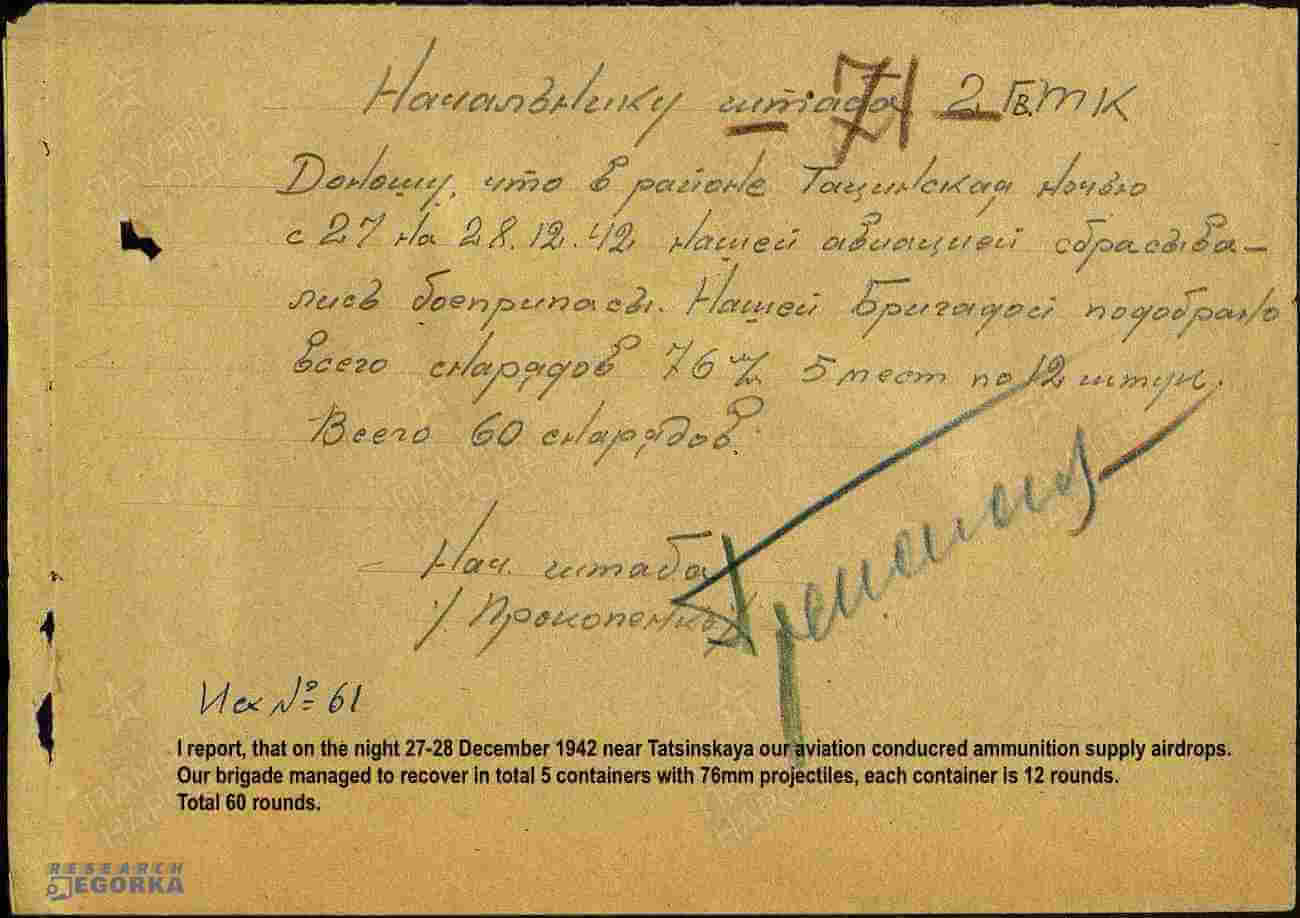 Начальнику штаба 2 Гв.ТК
71
Доношу, что в районе Тацинская ночью
с 27 на 28.12.42 нашей авиацией сбрасыва-
лись боеприпасы. Нашей Бригадой подобрано
всего снарядов 76 м/м 5 мест по 12 штук.
Всего 60 снарядов.
Нач. штаба
/Прокопенко/
Исх №61
I report, that on the night 27-28 December 1942 near Tatsinskaya our aviation conducred ammunition supply airdrops.
Our brigade managed to recover in total 5 containers with 76mm projectiles, each container is 12 rounds.
Total 60 rounds.
RESEARCH
EGORKA